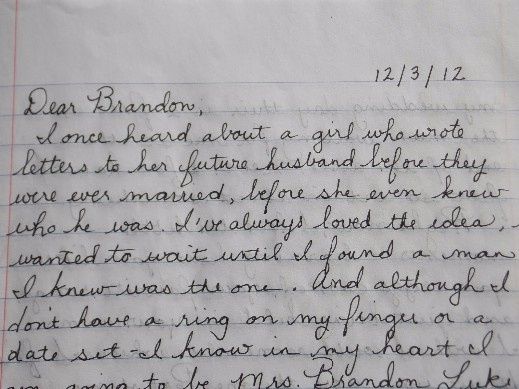 12/3/12
Dear Brandon,
I once heard about a girl who wrote
letters to her future husband before they
were ever married, before she even knew
who he was. I've always loved the idea,
wanted to wait until I found a man
I knew was the one. And although I
don't have a ring on my finger or a
date set - I know in my heart I
am going to be Mrs. Brandon